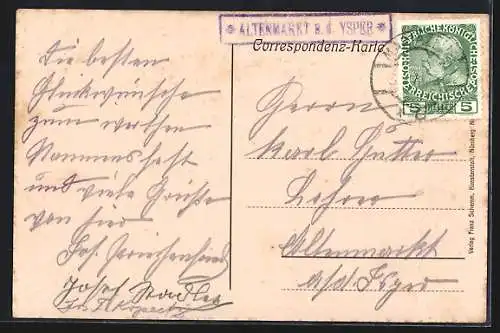 * ALTENMARKT a. d. YSPER *
Correspondenz-Karte
KAISERLICHE KÖNIGLICHE
ÖSTERREICHISCHE
5 HELLER 5
Die besten
Glückwünsche
zum werthen
Namensfest
und viele Grüße
von hier
Jos.
Josef
Herrn
Karl
Lehrer
Altenmarkt
a/d Isper
Verlag Franz Schemm, Kunstanstalt, Nürnberg